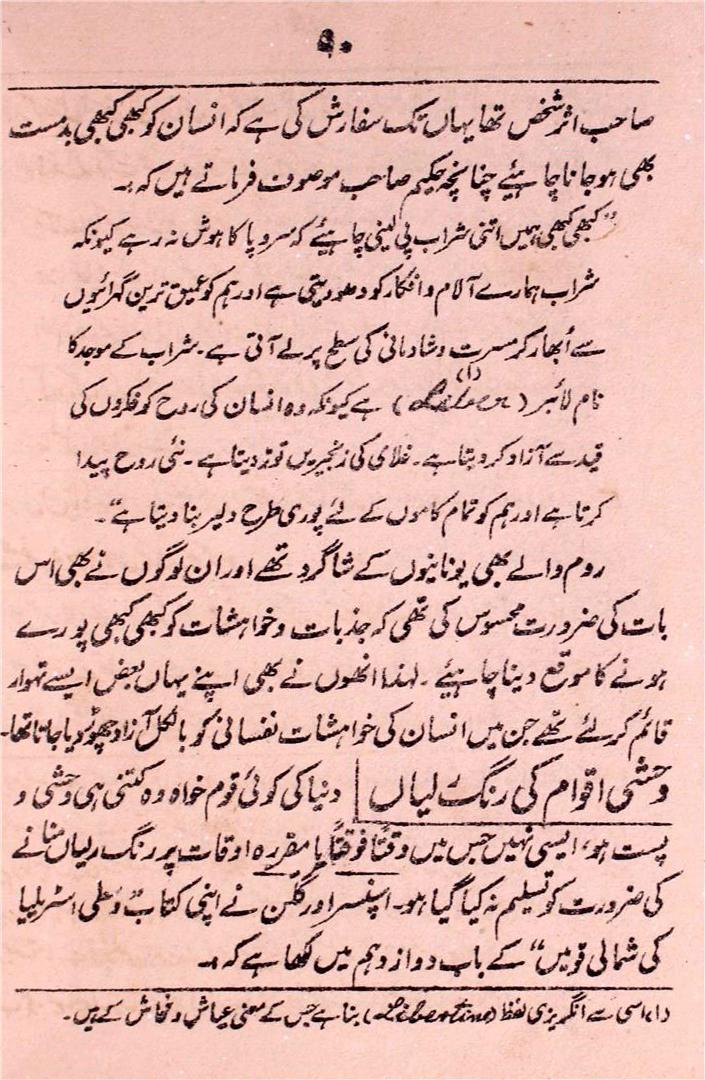 ۹۰
صاحب اثر شخص تھا یہاں تک سفارش کی ہے کہ انسان کو کبھی کبھی بدمست
بھی ہوجانا چاہئیے چنانچہ حکیم صاحب موصوف فرماتے ہیں کہ :۔
”کبھی کبھی ہمیں اتنی شراب پی لینی چاہیئے کہ سر و پا کا ہوش نہ رہے کیونکہ
شراب ہمارے آلام و افکار کو دھو دیتی ہے اور ہم کو عمیق ترین گہرائیوں
سے اُبھار کر مسرت و شادمانی کی سطح پر لے آتی ہے۔ شراب کے موجد کا
نام لائبر (Leiber) (۱) ہے کیونکہ وہ انسان کی روح کو فکروں کی
قید سے آزاد کر دیتا ہے۔ غلامی کی زنجیریں توڑ دیتا ہے۔ نئی روح پیدا
کرتا ہے اور ہم کو تمام کاموں کے لئے پوری طرح دلیر بنا دیتا ہے“۔
روم والے بھی یونانیوں کے شاگرد تھے اور ان لوگوں نے بھی اس
بات کی ضرورت محسوس کی تھی کہ جذبات و خواہشات کو کبھی کبھی پورے
ہونے کا موقع دینا چاہئیے۔ لہذا انھوں نے بھی اپنے یہاں بعض ایسے تہوار
قائم کر لئے تھے جن میں انسان کی خواہشات نفسانی کو بالکل آزاد چھوڑ دیا جاتا تھا۔
وحشی اقوام کی رنگ رلیاں | دنیا کی کوئی قوم خواہ وہ کتنی ہی وحشی و
پست ہو، ایسی نہیں جس میں وقتًا فوقتًا یا مقررہ اوقات پر رنگ رلیاں منانے
کی ضرورت کو تسلیم نہ کیا گیا ہو۔ اسپنسر اور گلن نے اپنی کتاب ”وسطی اسٹریلیا
کی شمالی قومیں“ کے باب دوازدہم میں لکھا ہے کہ :۔
(۱) اسی سے انگریزی لفظ (Libertine) بنا ہے جس کے معنی عیاش و فحاش کے ہیں۔